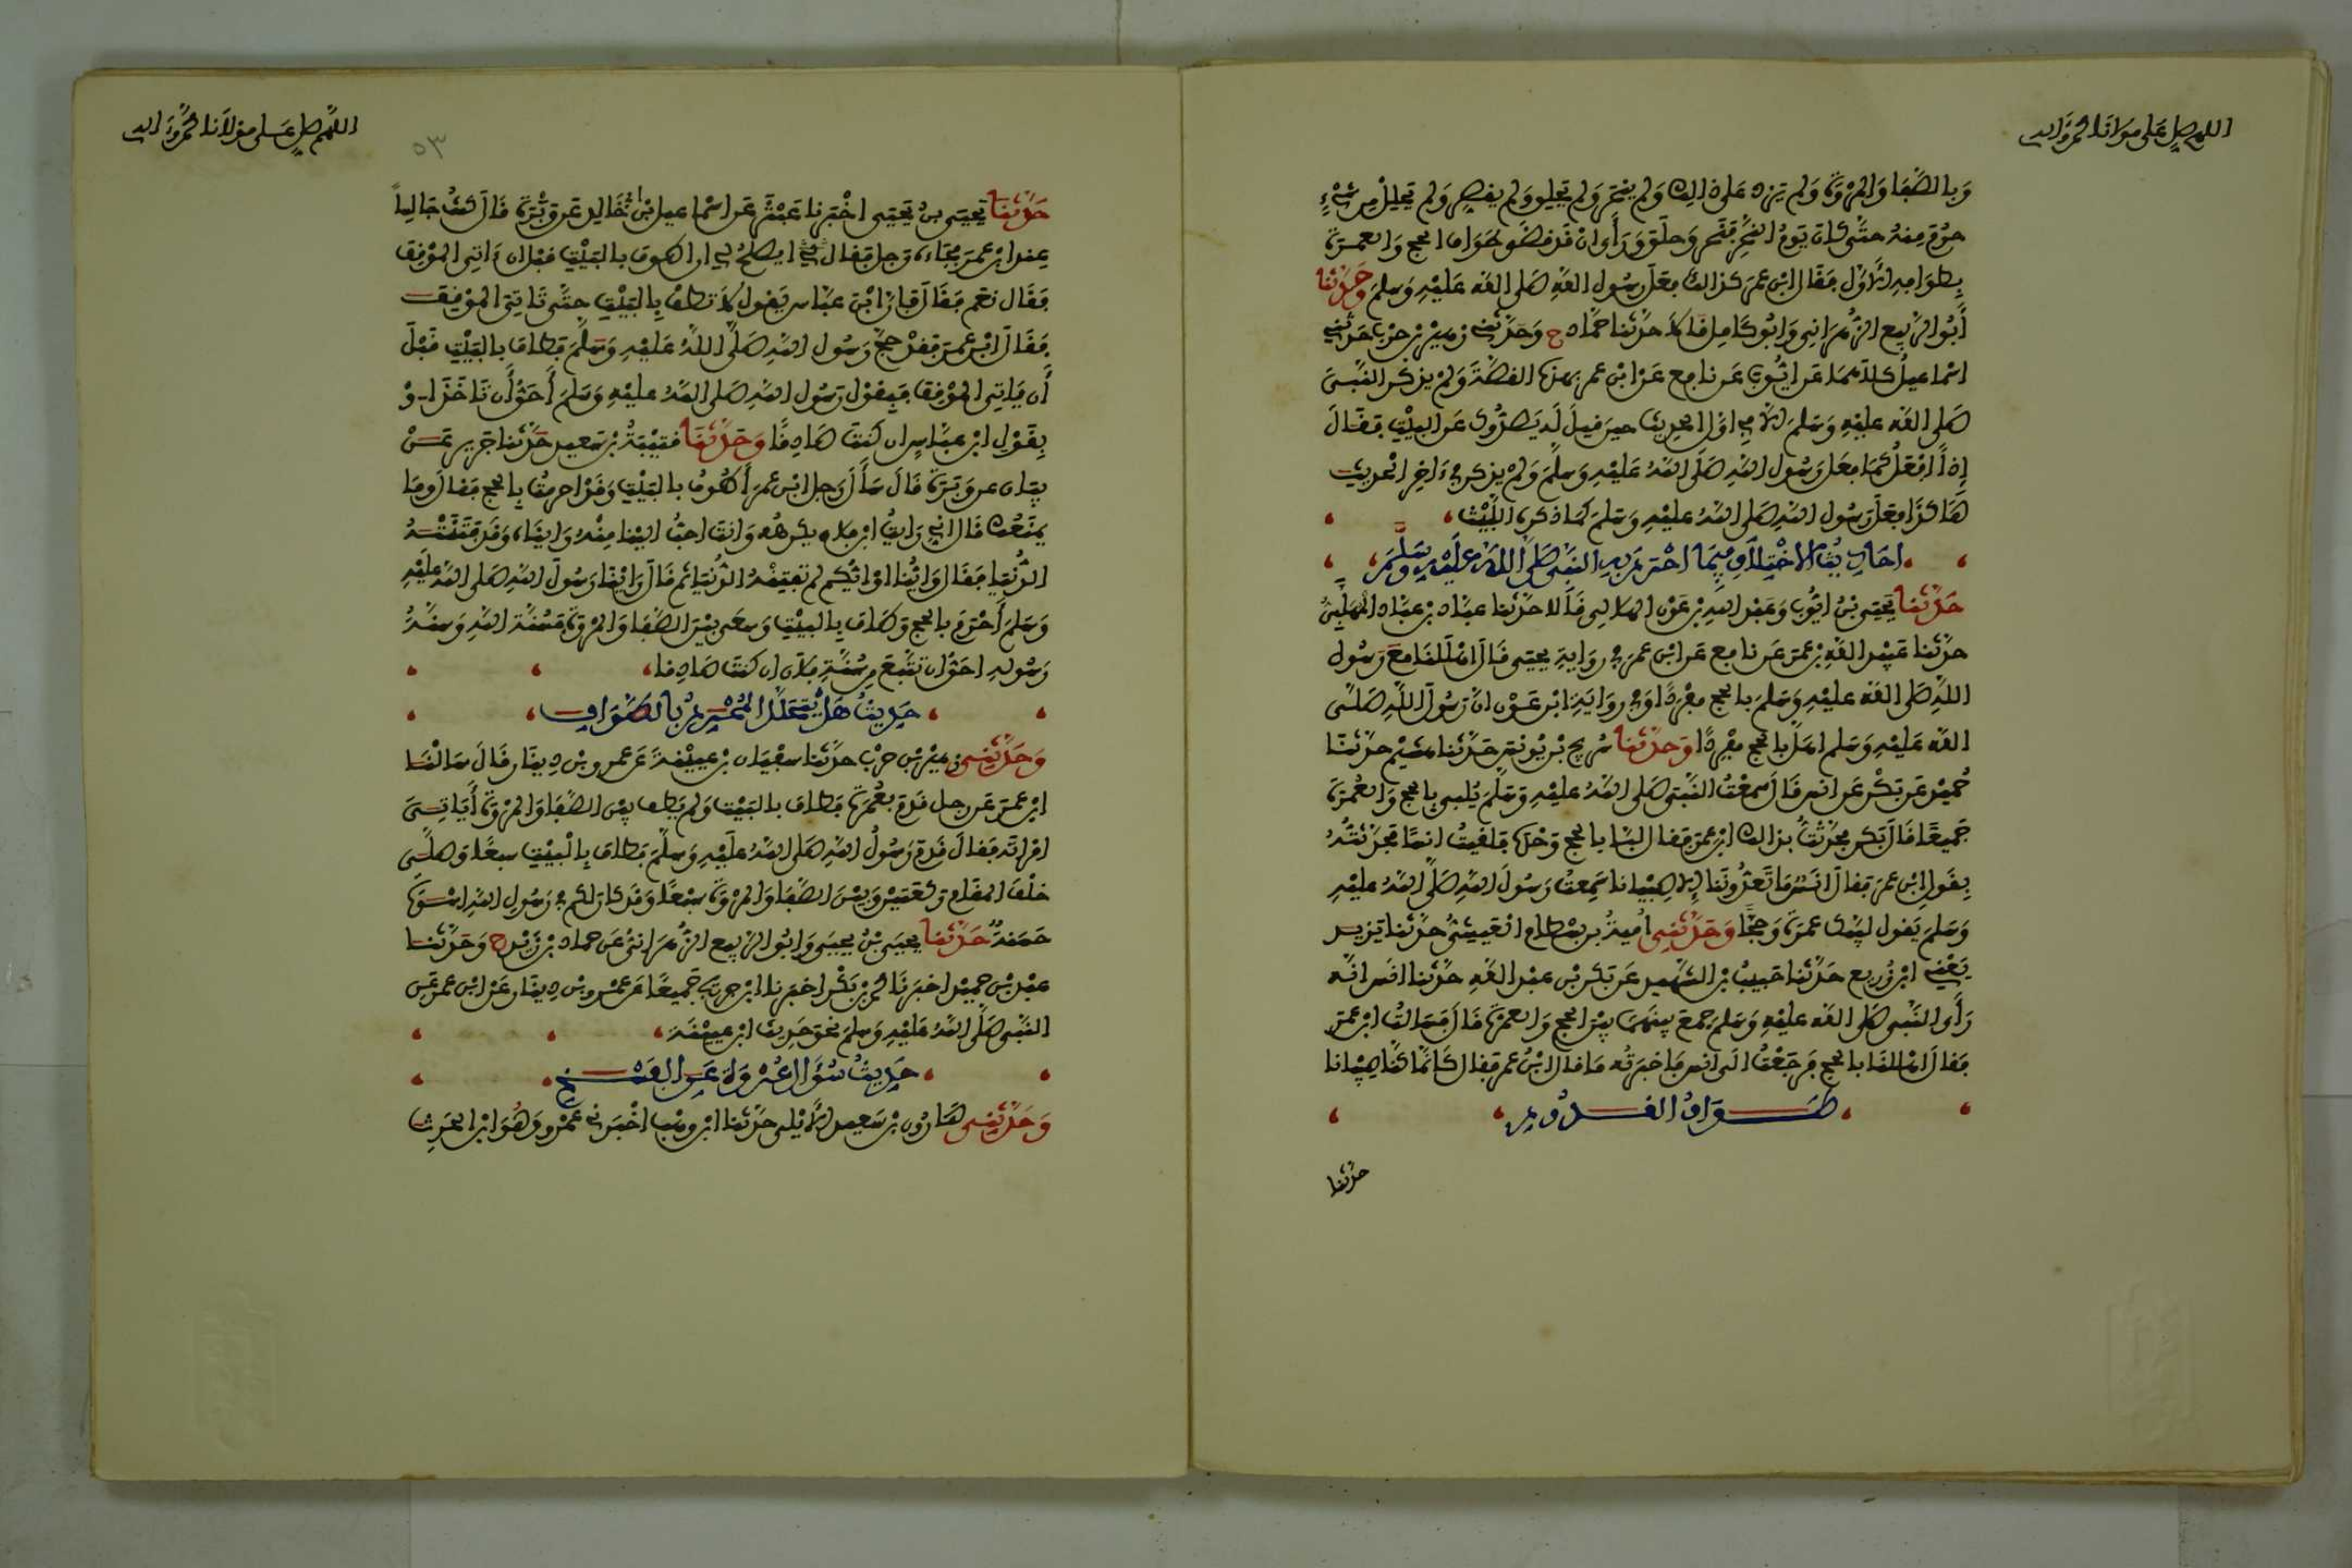 اللهم صل على مولانا محمد وآله
وبالصفا والمروة ولم يزد على ذلك ولم ينحر ولم يحلق ولم يقصر ولم يحلل من شيء
حرم منه حتى كان يوم النحر فنحر وحلق ورأى ان قد قضى طواف الحج والعمرة
بطوافه الأول فقال ابن عمر كذلك فعل رسول الله صلى الله عليه وسلم وحدثنا
أبو الربيع الزهراني وأبو كامل قالا حدثنا حماد ح وحدثني زهير بن حرب حدثني
اسماعيل كلاهما عن ايوب عن نافع عن ابن عمر بهذه القصة ولم يذكر النبي
صلى الله عليه وسلم الا في اول الحديث حين قيل له يصدوك عن البيت فقال
إذاً افعل كما فعل رسول الله صلى الله عليه وسلم ولم يذكر في ءاخر الحديث
هاكذا فعل رسول الله صلى الله عليه وسلم كما ذكره الليث
احاديث الاختلاف فيما احرم به النبي صلى الله عليه وسلم
حدثنا يحيى بن ايوب وعبد الله بن عون الهلالي قالا حدثنا عباد بن عباد المهلبي
حدثنا عبيد الله بن عمر عن نافع عن ابن عمر في رواية يحيى قال اهللنا مع رسول
الله صلى الله عليه وسلم بالحج مفردا وفي رواية ابن عون ان رسول الله صلى
الله عليه وسلم اهل بالحج مفردا وحدثنا سريج بن يونس حدثنا هشيم حدثنا
حميد عن بكر عن انس قال سمعت النبي صلى الله عليه وسلم يلبي بالحج والعمرة
جميعا قال بكر فحدثت بذلك ابن عمر فقال لبى بالحج وحده فلقيت انسا فحدثته
بقول ابن عمر فقال انس ما تعدوننا إلا صبيانا سمعت رسول الله صلى الله عليه
وسلم يقول لبيك عمرة وحجا وحدثني امية بن بسطام العيشي حدثنا يزيد
يعني ابن زريع حدثنا حبيب بن الشهيد عن بكر بن عبد الله حدثنا انس انه
رأى النبي صلى الله عليه وسلم جمع بينهما بين الحج والعمرة قال فسالت ابن عمر
فقال اهللنا بالحج فرجعت الى انس فاخبرته ما قال ابن عمر فقال كأنما كنا صبيانا
طواف القدوم
حدثنا
اللهم صل على مولانا محمد وءاله
٥٣
حدثنا يحيى بن يحيى اخبرنا عبثر عن اسماعيل بن ابي خالد عن وبرة قال كنت جالسا
عند ابن عمر فجاءه رجل فقال ايصلح لي ان اطوف بالبيت قبل ان ءاتي الموقف
فقال نعم فقال فإن ابن عباس يقول لا تطف بالبيت حتى تاتي الموقف
فقال ابن عمر فقد حج رسول الله صلى الله عليه وسلم فطاف بالبيت قبل
أن ياتي الموقف فبقول رسول الله صلى الله عليه وسلم أحق أن تاخذ او
بقول ابن عباس ان كنت صادقا وحدثنا قتيبة بن سعيد حدثنا جرير عن
بيان عن وبرة قال سأل رجل ابن عمر أطوف بالبيت وقد احرمت بالحج فقال وما
يمنعك قال اني رايت ابن فلان يكرهه وانت احب الينا منه رايناه وقد فتنته
الدنيا فقال واينا او ايكم لم تفتنه الدنيا ثم قال راينا رسول الله صلى الله عليه
وسلم أحرم بالحج وطاف بالبيت وسعى بين الصفا والمروة فسنة الله وسنة
رسوله احق ان تتبع من سنة فلان ان كنت صادقا
حديث هل يتحلل المحرم بالطواف
وحدثني زهير بن حرب حدثنا سفيان بن عيينة عن عمرو بن دينار قال سالنا
ابن عمر عن رجل قدم بعمرة فطاف بالبيت ولم يطف بين الصفا والمروة أياتي
امرأته فقال قدم رسول الله صلى الله عليه وسلم فطاف بالبيت سبعا وصلى
خلف المقام ركعتين وبين الصفا والمروة سبعا وقد كان لكم في رسول الله اسوة
حسنة حدثنا يحيى بن يحيى وابو الربيع الزهراني عن حماد بن زيد ح وحدثنا
عبد بن حميد اخبرنا محمد بن بكر اخبرنا ابن جريج جميعا عن عمرو بن دينار عن ابن عمر عن
النبي صلى الله عليه وسلم نحو حديث ابن عيينة
حديث سؤال عروة عن الفسخ
وحدثني هارون بن سعيد الأيلي حدثنا ابن وهب اخبرني عمرو وهو ابن الحرث